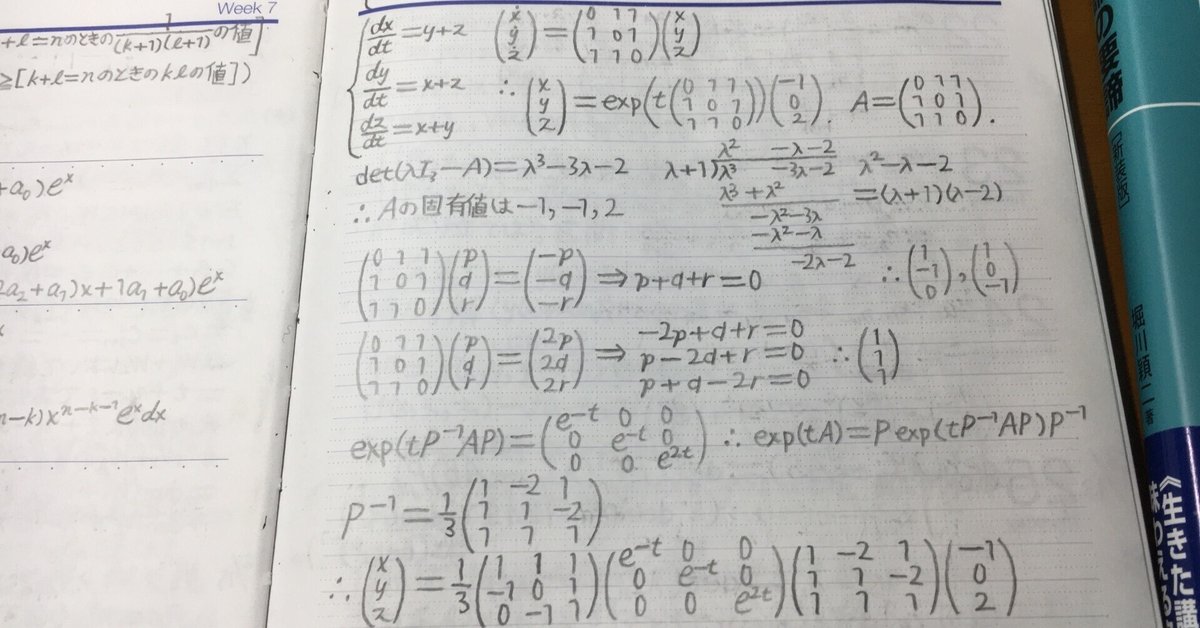 Week 7
+l=nのときの1/((k+1)(l+1))の値]
≧[k+l=nのときのklの値])
+a₀)eˣ
a₀)eˣ
2a₂+a₁)x+1a₁+a₀)eˣ
n-k)xⁿ⁻ᵏ⁻¹eˣdx
{dx/dt=y+z (ẋ ẏ ż)=(0 1 1; 1 0 1; 1 1 0)(x y z)
dy/dt=x+z ∴(x y z)=exp(t(0 1 1; 1 0 1; 1 1 0))(-1 0 2). A=(0 1 1; 1 0 1; 1 1 0).
dz/dt=x+y
det(λI₃-A)=λ³-3λ-2 λ+1)λ³ -3λ-2 λ² -λ-2 λ²-λ-2
λ³+λ² =(λ+1)(λ-2)
∴Aの固有値は-1,-1,2 -λ²-3λ
-λ²-λ
-2λ-2
(0 1 1; 1 0 1; 1 1 0)(p q r)=(-p -q -r)⇒p+q+r=0 ∴(1 -1 0),(1 0 -1)
(0 1 1; 1 0 1; 1 1 0)(p q r)=(2p 2q 2r)⇒ -2p+q+r=0
p-2q+r=0 ∴(1 1 1)
p+q-2r=0
exp(tP⁻¹AP)=(e⁻ᵗ 0 0; 0 e⁻ᵗ 0; 0 0 e²ᵗ) ∴exp(tA)=Pexp(tP⁻¹AP)P⁻¹
P⁻¹=1/3(1 -2 1; 1 1 -2; 1 1 1)
∴(x y z)=1/3(1 1 1; -1 0 1; 0 -1 1)(e⁻ᵗ 0 0; 0 e⁻ᵗ 0; 0 0 e²ᵗ)(1 -2 1; 1 1 -2; 1 1 1)(-1 0 2)
の要諦
[新装版]
堀川穎二 著
《生きた講
味わえる